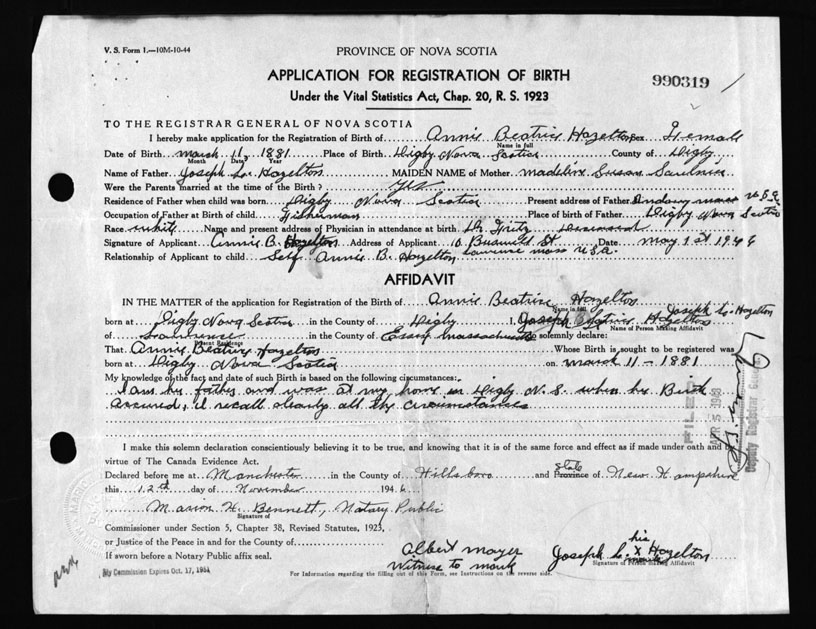 V. S. Form 1.—10M-10-44
PROVINCE OF NOVA SCOTIA
APPLICATION FOR REGISTRATION OF BIRTH
990319
Under the Vital Statistics Act, Chap. 20, R. S. 1923
TO THE REGISTRAR GENERAL OF NOVA SCOTIA
I hereby make application for the Registration of Birth of Annie Beatrice Hazelton Sex Female
Name in full
Date of Birth March 11, 1881 Place of Birth Digby Nova Scotia County of Digby
Month Day Year
Name of Father Joseph L. Hazelton MAIDEN NAME of Mother Madeline Susan Saulnier
Were the Parents married at the time of the Birth? Yes
Residence of Father when child was born Digby Nova Scotia Present address of Father mass U.S.A.
Occupation of Father at Birth of child Fisherman Place of birth of Father Digby Nova Scotia
Race white Name and present address of Physician in attendance at birth Dr Fritz Deceased
Signature of Applicant Annie B. Hazelton Address of Applicant St. Date May 1st 1946
Lawrence mass U.S.A.
Relationship of Applicant to child Self Annie B. Hazelton
AFFIDAVIT
IN THE MATTER of the application for Registration of the Birth of Annie Beatrice Hazelton
Name in full
Joseph L. Hazelton
born at Digby Nova Scotia in the County of Digby I, Joseph Hazelton
Name of Person Making Affidavit
of Lawrence in the County of Essex Massachusetts do solemnly declare:
Present Residence
That Annie Beatrice Hazelton Whose Birth is sought to be registered was
born at Digby Nova Scotia on March 11 - 1881
My knowledge of the fact and date of such Birth is based on the following circumstances:
I am her father and was at my home in Digby N.S. when her Birth
occured, I recall clearly all the circumstances
FILED
APR 5 1948
Deputy Registrar General
I make this solemn declaration conscientiously believing it to be true, and knowing that it is of the same force and effect as if made under oath and by
virtue of The Canada Evidence Act.
Declared before me at Manchester in the County of Hillsboro and State Province of New Hampshire
this 12th day of November 1946
Marion H. Bennett, Notary Public
Signature of
Commissioner under Section 5, Chapter 38, Revised Statutes, 1923,
or Justice of the Peace in and for the County of
If sworn before a Notary Public affix seal.
Albert Moyer
Witness to mark
his
Joseph L. X Hazelton
mark
Signature of Person Making Affidavit
My Commission Expires Oct. 17, 1951
For Information regarding the filling out of this Form, see Instructions on the reverse side.